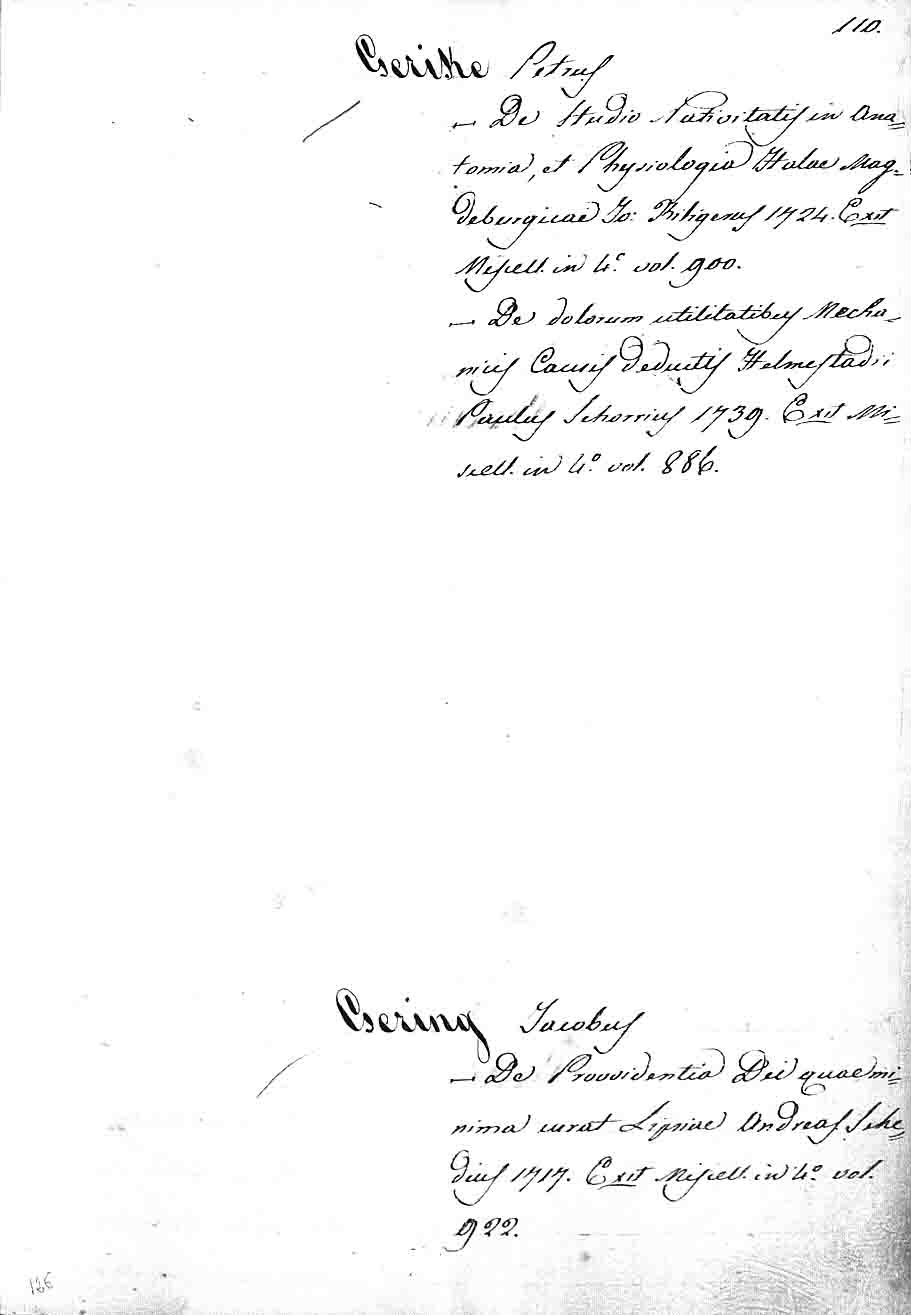 110.
Gerike Petrus
— De Studio Nativitatis in Ana=
tomia, et Physiologia Halae Mag=
deburgicae Jo: 1724. Exit
Miscell. in 4.º vol. 900.
— De dolorum utilitatibus Mecha=
nicis Causis deductis Helmestadii
Paulus Schorrius 1739. Exit Mi=
scell. in 4.º vol. 886.
Gering Jacobus
— De Provvidentia Dei quae mi=
nima curat Lipsiae Andreas Sche=
dius 1717. Exit Miscell. in 4.º vol.
922.
126